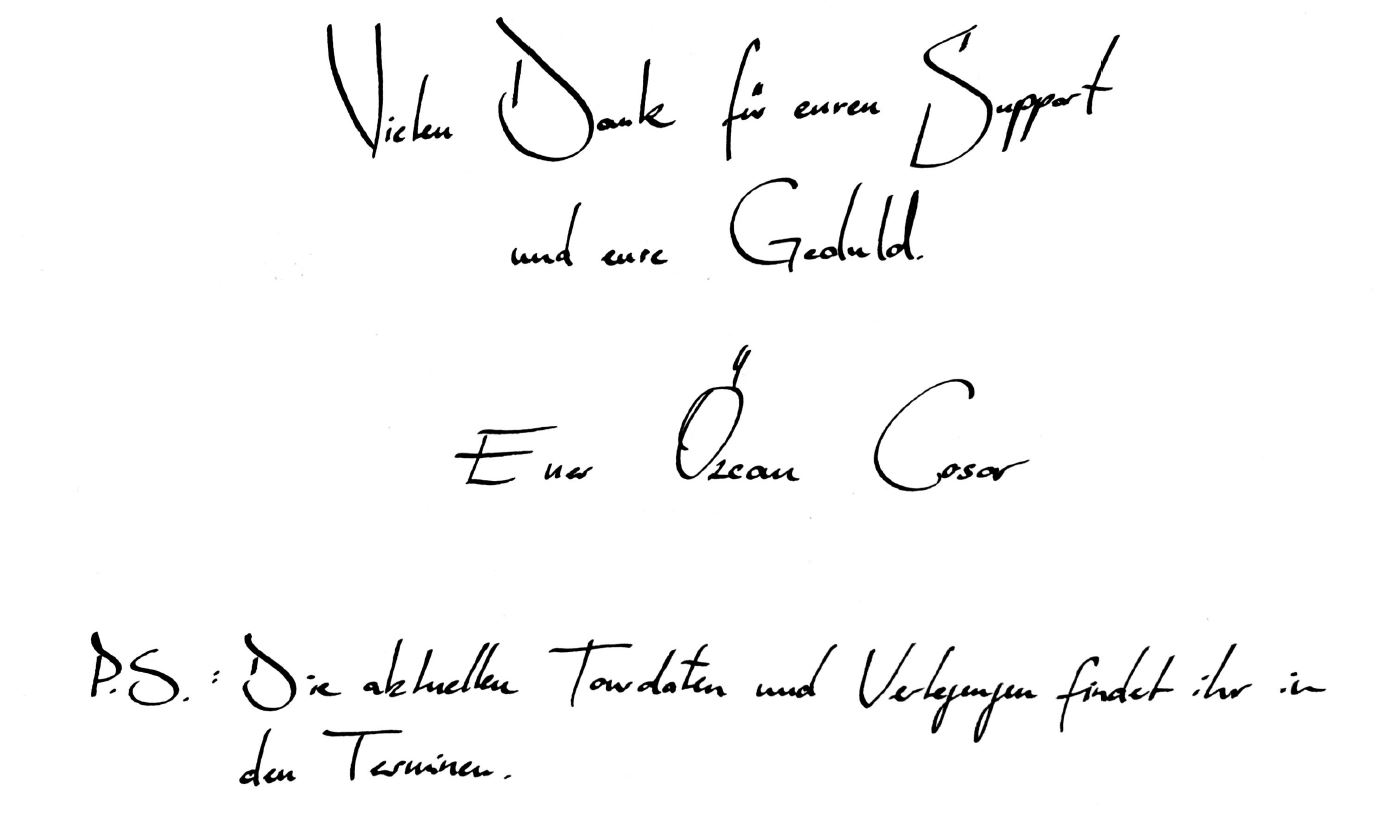 Vielen Dank für euren Support
und eure Geduld.
Euer Özcan Cosar
P.S.: Die aktuellen Tourdaten und Verlegungen findet ihr in
den Terminen.